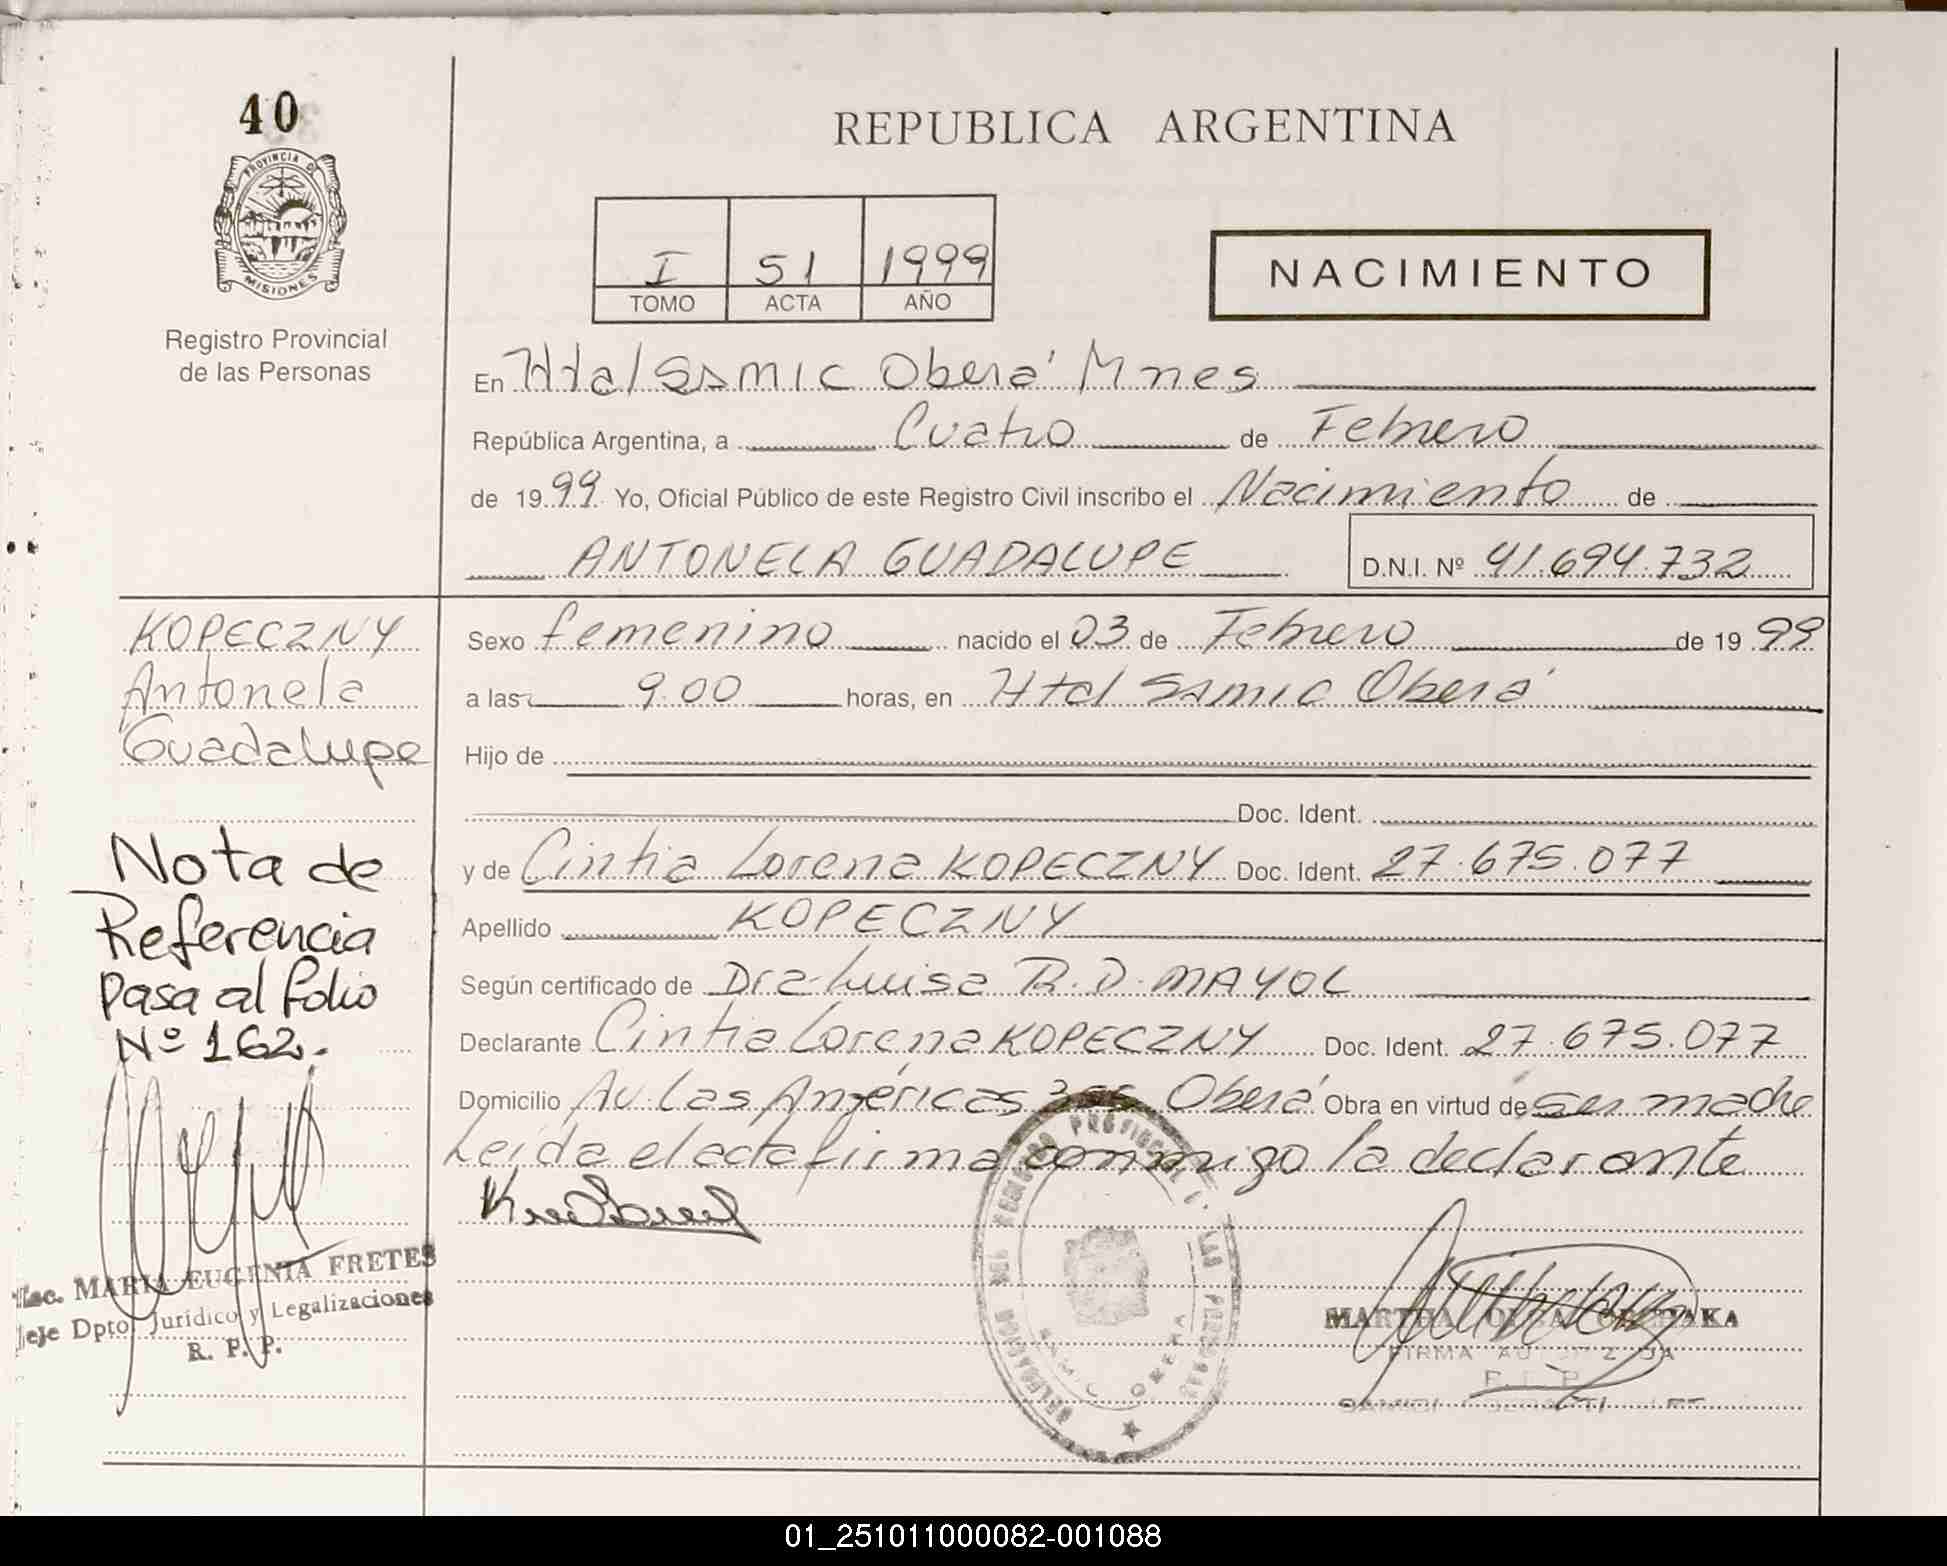 40
PROVINCIA D
MISIONES
Registro Provincial
de las Personas
REPUBLICA ARGENTINA
I 51 1999
TOMO ACTA AÑO
NACIMIENTO
En Htal Samic Oberá Mnes
República Argentina, a Cuatro de Febrero
de 1999 Yo, Oficial Público de este Registro Civil inscribo el Nacimiento de
ANTONELA GUADALUPE D.N.I. Nº 41.694.732
KOPECZNY
Antonela
Guadalupe
Sexo femenino nacido el 03 de Febrero de 1999
a las 9.00 horas, en Htal Samic Oberá
Hijo de
Doc. Ident.
y de Cintia Lorena KOPECZNY Doc. Ident. 27.675.077
Apellido KOPECZNY
Según certificado de Dra Luisa R. D. MAYOL
Declarante Cintia Lorena KOPECZNY Doc. Ident. 27.675.077
Domicilio Av. Las Américas Oberá Obra en virtud de ser madre
Leída el acta firma conmigo la declarante
Nota de
Referencia
Pasa al folio
Nº 162.
MARIA EUGENIA FRETES
Jefe Dpto. Jurídico y Legalizaciones
R. P. P.
DELEGACION DEL REGISTRO PROVINCIAL LAS PERSONAS
SAMIC OBERA
MARTHA
FIRMA AUTORIZADA
01_251011000082-001088